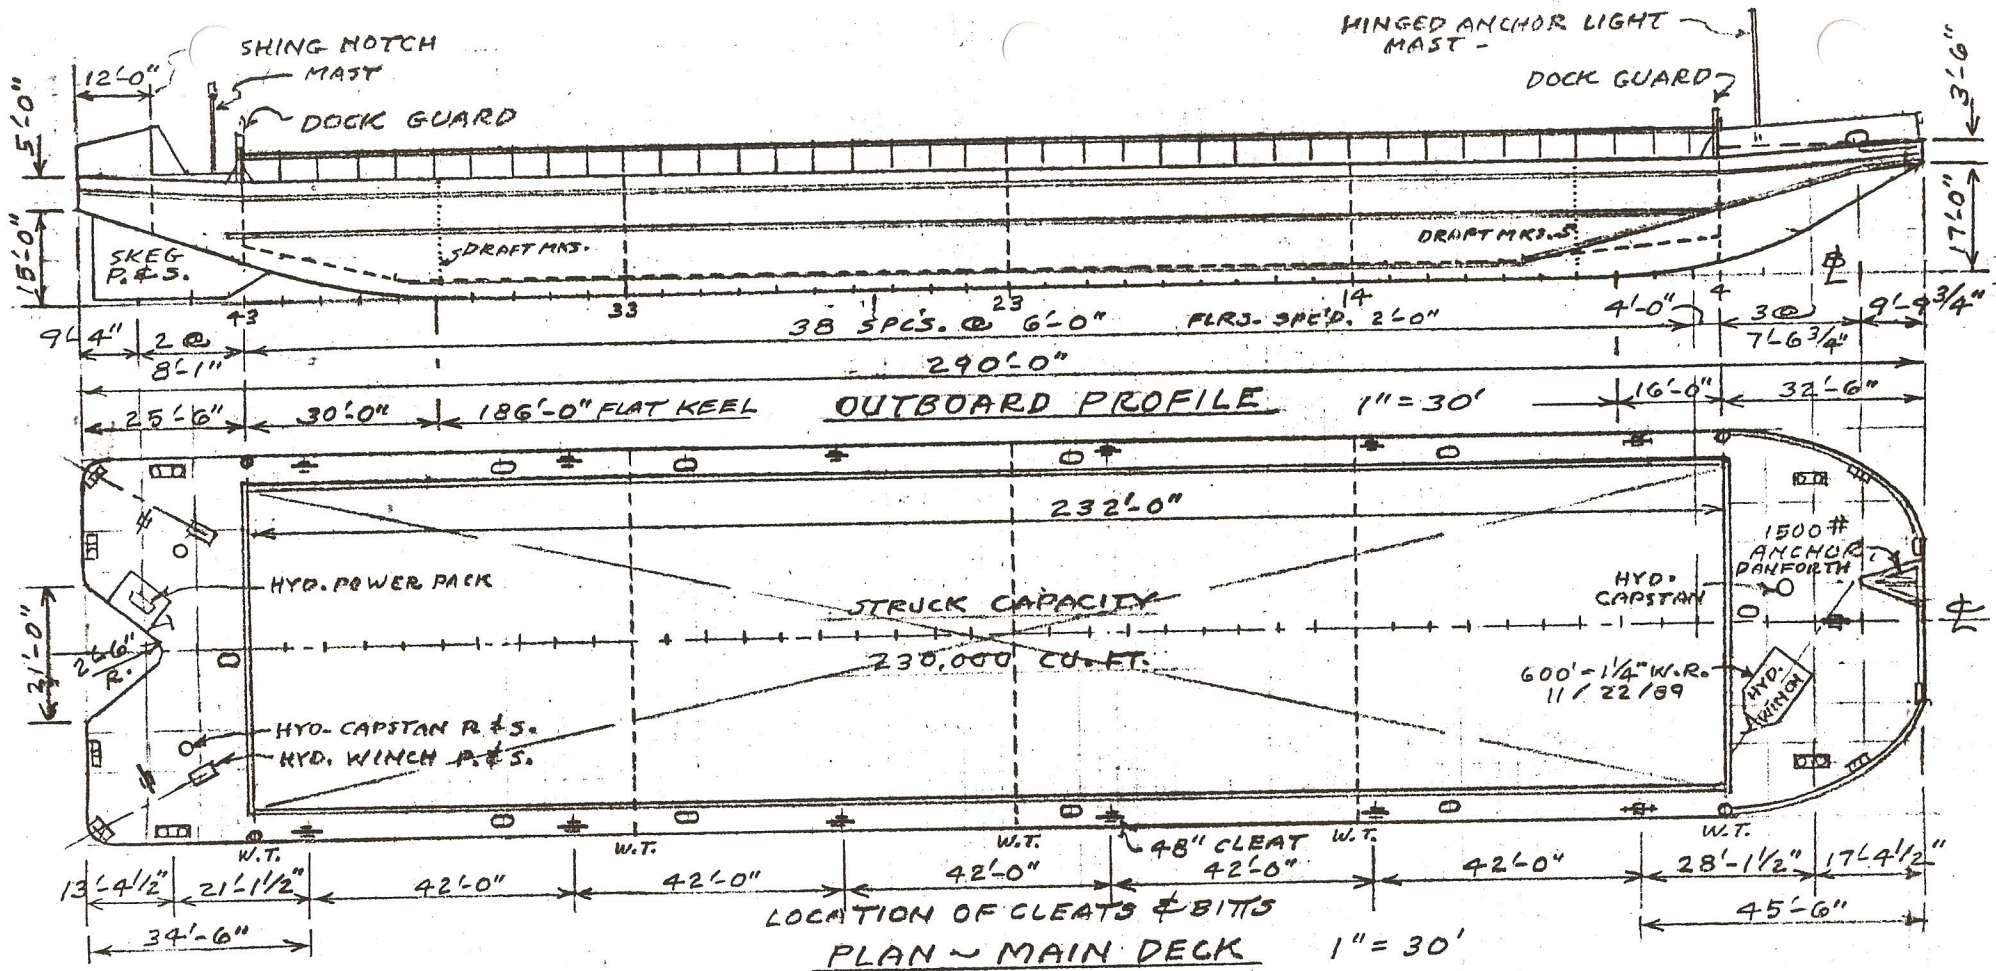 SHING NOTCH
MAST
12'-0"
5'-0"
DOCK GUARD
HINGED ANCHOR LIGHT
MAST -
DOCK GUARD
3'-6"
15'-0"
SKEG
P. & S.
DRAFT MKS.
DRAFT MKS.
17'-0"
43
33
23
14
4
9'-4"
2 @
8'-1"
38 SPC'S. @ 6'-0"
FLRS. SPC'D. 2'-0"
4'-0"
3 @
7'-6 3/4"
9'-9 3/4"
290'-0"
25'-6"
30'-0"
186'-0" FLAT KEEL
OUTBOARD PROFILE
1" = 30'
16'-0"
32'-6"
232'-0"
HYD. POWER PACK
STRUCK CAPACITY
230,000 CU. FT.
1500 #
ANCHOR
DANFORTH
HYD.
CAPSTAN
31'-0"
2'-6"
R.
600' - 1 1/4" W.R.
11/22/89
HYD.
WINCH
HYD. CAPSTAN P. & S.
HYD. WINCH P. & S.
W.T.
W.T.
W.T.
W.T.
W.T.
48" CLEAT
13'-4 1/2"
21'-1 1/2"
42'-0"
42'-0"
42'-0"
42'-0"
42'-0"
28'-1 1/2"
17'-4 1/2"
34'-6"
LOCATION OF CLEATS & BITTS
45'-6"
PLAN ~ MAIN DECK
1" = 30'